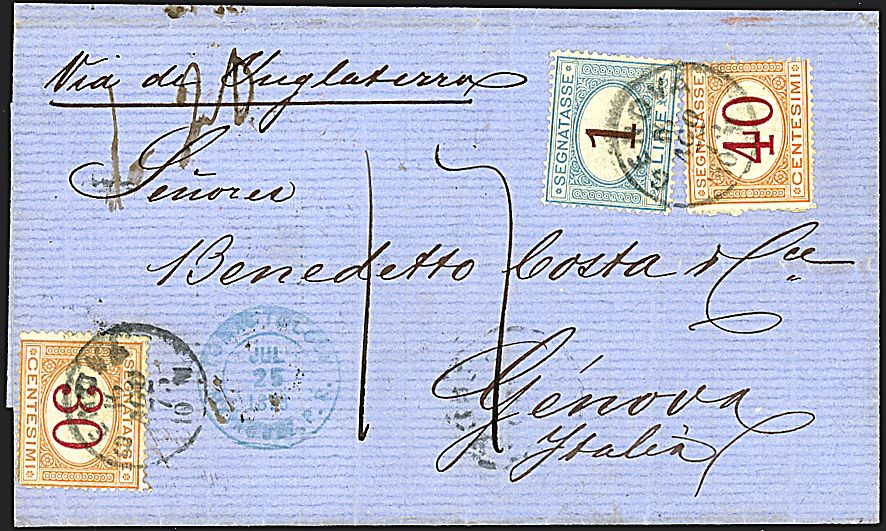 Via de Inglaterra
Señores
Benedetto Costa & Cª
Génova
Italia
17
SEGNATASSE
1
LIRE
SEGNATASSE
40
CENTESIMI
SEGNATASSE
30
CENTESIMI
JUL
25
AGO